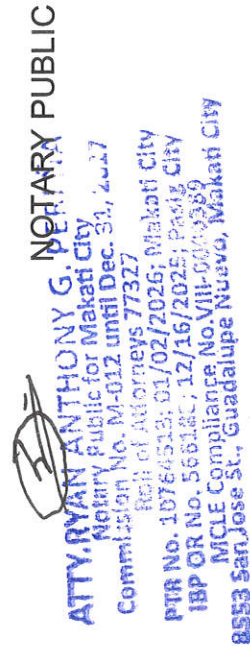 NOTARY PUBLIC
ATTY. RYAN ANTHONY G.
Notary Public for Makati City
Commission No. M-012 until Dec. 31, 2027
Roll of Attorneys 77327
PTR No. 10764513; 01/02/2026; Makati City
IBP OR No. 12/16/2025; Pasig City
MCLE Compliance No.
8553 San Jose St., Guadalupe Nuevo, Makati City